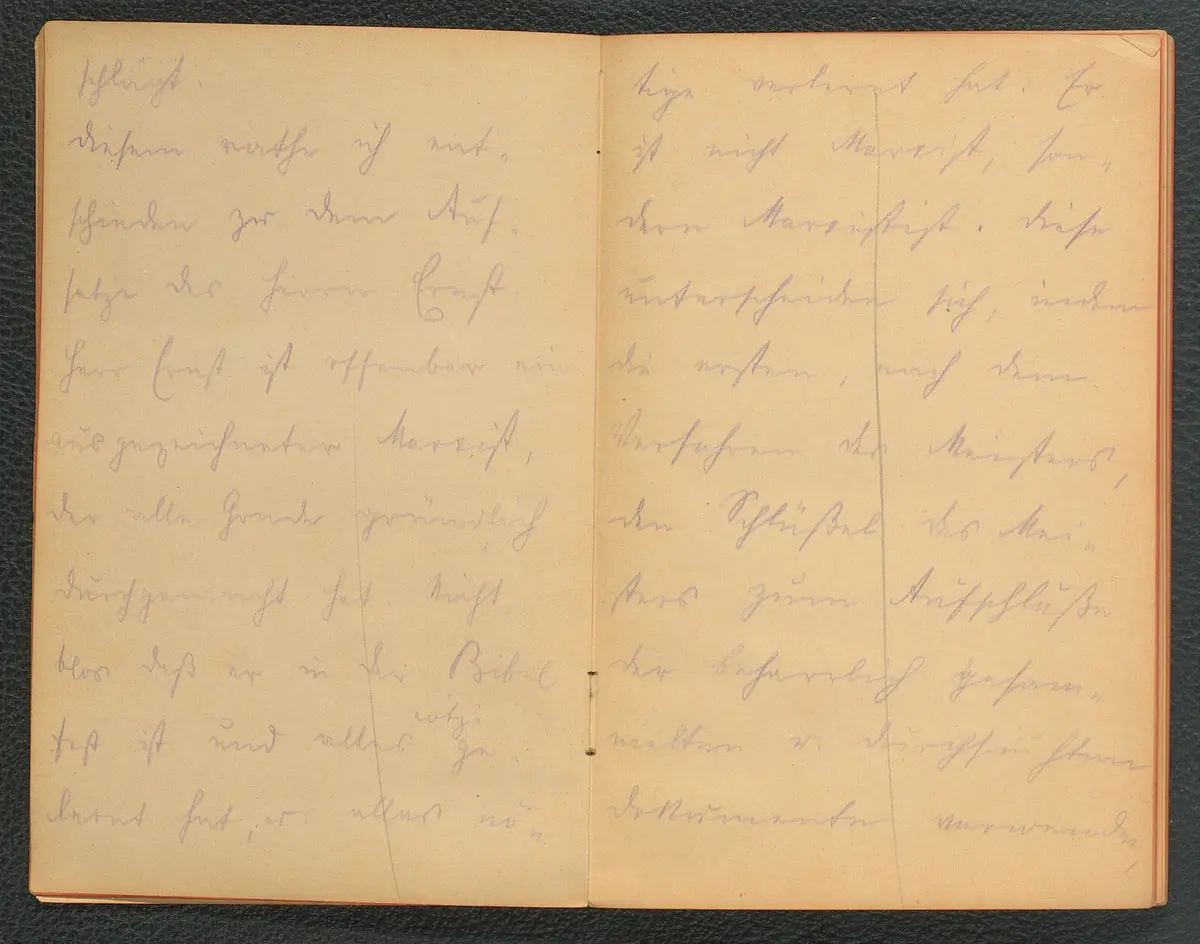 schlägt.
diesem rathe ich ent-
schieden zu dem Auf-
satze des Herrn Ernst.
Herr Ernst ist offenbar ein
ausgezeichneter Marxist,
der alle Grade gründlich
durchgemacht hat. Nicht
blos daß er in der Bibel
fest ist und alles ge-
lernt hat, er alles nö-
tige verlernt hat. Er
ist nicht Marxist, son-
dern Marxistist. Diese
unterscheiden sich, indem
die ersten, nach dem
Verfahren des Meisters,
den Schlüßel des Mei-
sters zum Aufschluße
der beharrlich gesam-
melten u. durchsichteten
Dokumente verwenden,